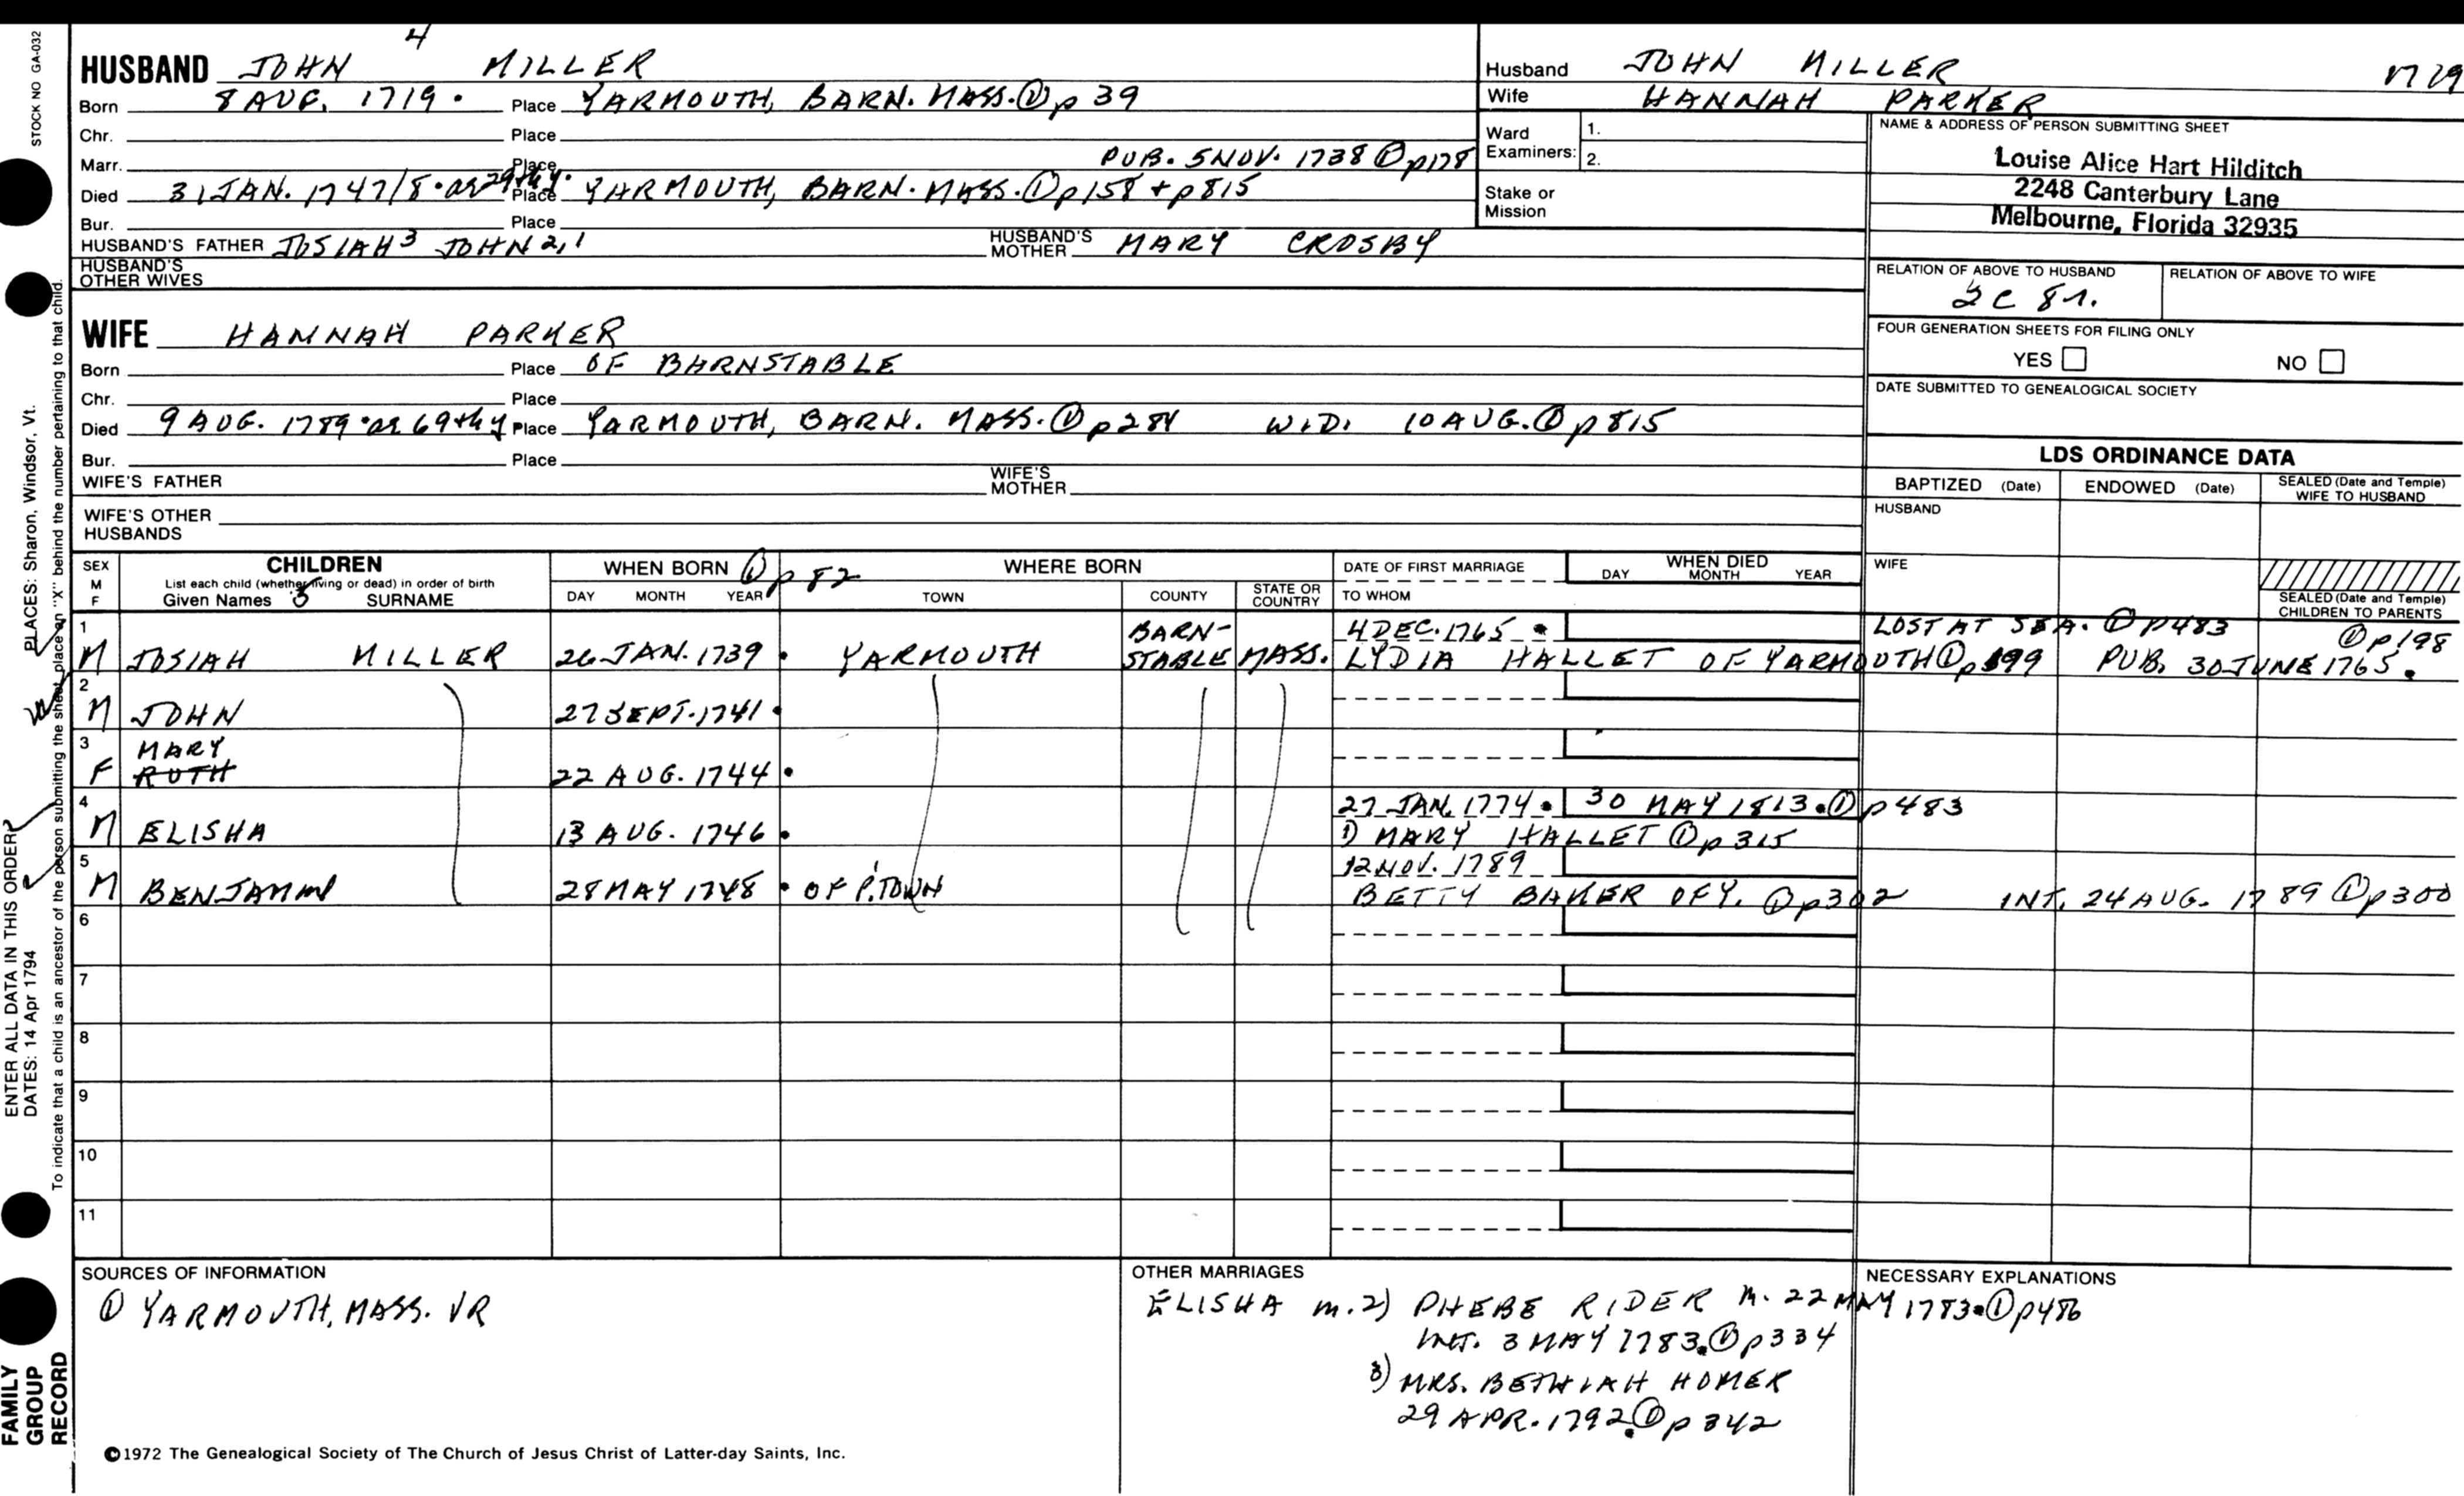 STOCK NO GA-032
4
HUSBAND JOHN MILLER
Born 8 AUG. 1719 . Place YARMOUTH, BARN. MASS. ① p 39
Chr. Place
Marr. Place PUB. 5 NOV. 1738 ① p178
Died 31 JAN. 1747/8 . ae 29th y. Place YARMOUTH, BARN. MASS. ① p158 + p815
Bur. Place
HUSBAND'S FATHER JOSIAH 3 JOHN 2,1 HUSBAND'S MOTHER MARY CROSBY
HUSBAND'S OTHER WIVES
WIFE HANNAH PARKER
Born Place OF BARNSTABLE
Chr. Place
Died 9 AUG. 1789 . ae 69th y Place YARMOUTH, BARN. MASS. ① p284 WID. 10 AUG. ① p815
Bur. Place
WIFE'S FATHER WIFE'S MOTHER
WIFE'S OTHER HUSBANDS
Husband JOHN MILLER 1719
Wife HANNAH PARKER
Ward Examiners: 1.
2.
Stake or Mission
NAME & ADDRESS OF PERSON SUBMITTING SHEET
Louise Alice Hart Hilditch
2248 Canterbury Lane
Melbourne, Florida 32935
RELATION OF ABOVE TO HUSBAND RELATION OF ABOVE TO WIFE
2C 8r.
FOUR GENERATION SHEETS FOR FILING ONLY
YES NO
DATE SUBMITTED TO GENEALOGICAL SOCIETY
LDS ORDINANCE DATA
BAPTIZED (Date) ENDOWED (Date) SEALED (Date and Temple) WIFE TO HUSBAND
HUSBAND
WIFE
SEALED (Date and Temple) CHILDREN TO PARENTS
SEX M F
CHILDREN
List each child (whether living or dead) in order of birth
Given Names 5 SURNAME
WHEN BORN ① p 82
DAY MONTH YEAR
WHERE BORN
TOWN COUNTY STATE OR COUNTRY
DATE OF FIRST MARRIAGE
TO WHOM
WHEN DIED
DAY MONTH YEAR
1 BARN- 4 DEC. 1765 . LOST AT SEA. ① P483 ① p198
M JOSIAH MILLER 26 JAN. 1739 . YARMOUTH STABLE MASS. LYDIA HALLET OF YARMOUTH ① p 199 PUB. 30 JUNE 1765 .
2
M JOHN 27 SEPT. 1741 .
3 MARY
F RUTH 22 AUG. 1744 .
4 27 JAN. 1774 . 30 MAY 1813 . ① p483
M ELISHA 13 AUG. 1746 . 1) MARY HALLET ① p315
5 12 NOV. 1789
M BENJAMIN 28 MAY 1748 . OF P.TOWN BETTY BAKER OF Y. ① p302 INT. 24 AUG. 1789 ① p300
6
7
8
9
10
11
SOURCES OF INFORMATION
① YARMOUTH, MASS. VR
OTHER MARRIAGES
ELISHA m. 2) PHEBE RIDER m. 22 MAY 1783 . ① p486
INT. 3 MAY 1783 . ① p334
3) MRS. BETHIAH HOMER
29 APR. 1792 . ① p 342
NECESSARY EXPLANATIONS
©1972 The Genealogical Society of The Church of Jesus Christ of Latter-day Saints, Inc.
ENTER ALL DATA IN THIS ORDER:
PLACES: Sharon, Windsor, Vt.
DATES: 14 Apr 1794
To indicate that a child is an ancestor of the person submitting the sheet, place an "X" behind the number pertaining to that child.
FAMILY
GROUP
RECORD